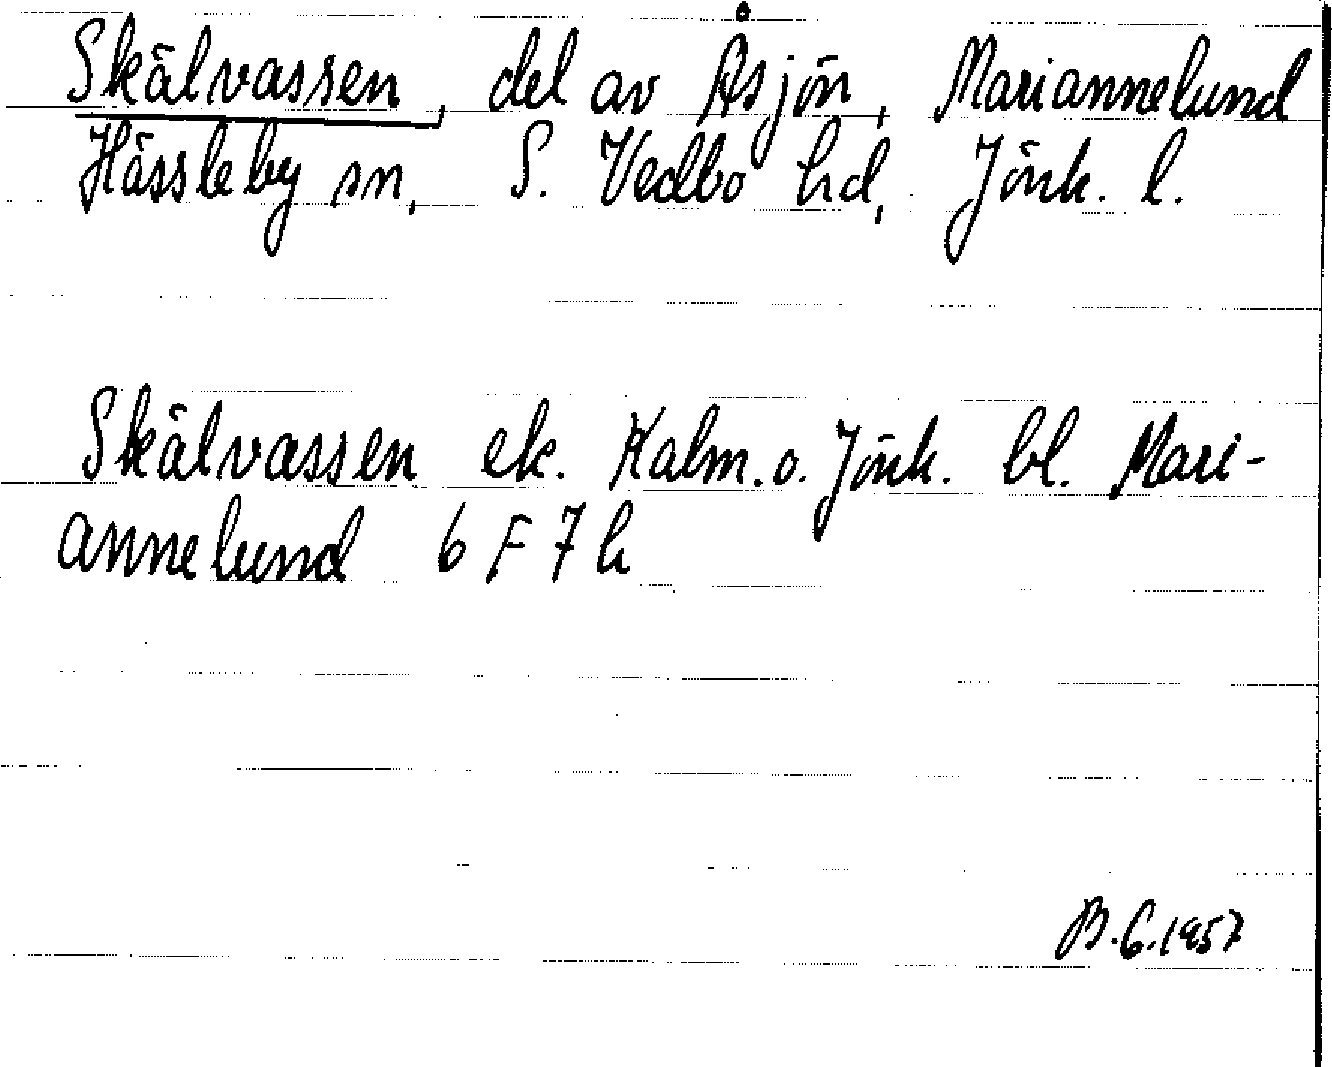 Skälvassen, del av Åsjön, Mariannelund
Hässleby sn, S. Vedbo hd, Jönk. l.
Skälvassen ek. Kalm. o. Jönk. bl. Mari-
annelund 6 F 7 h
B.G.1957